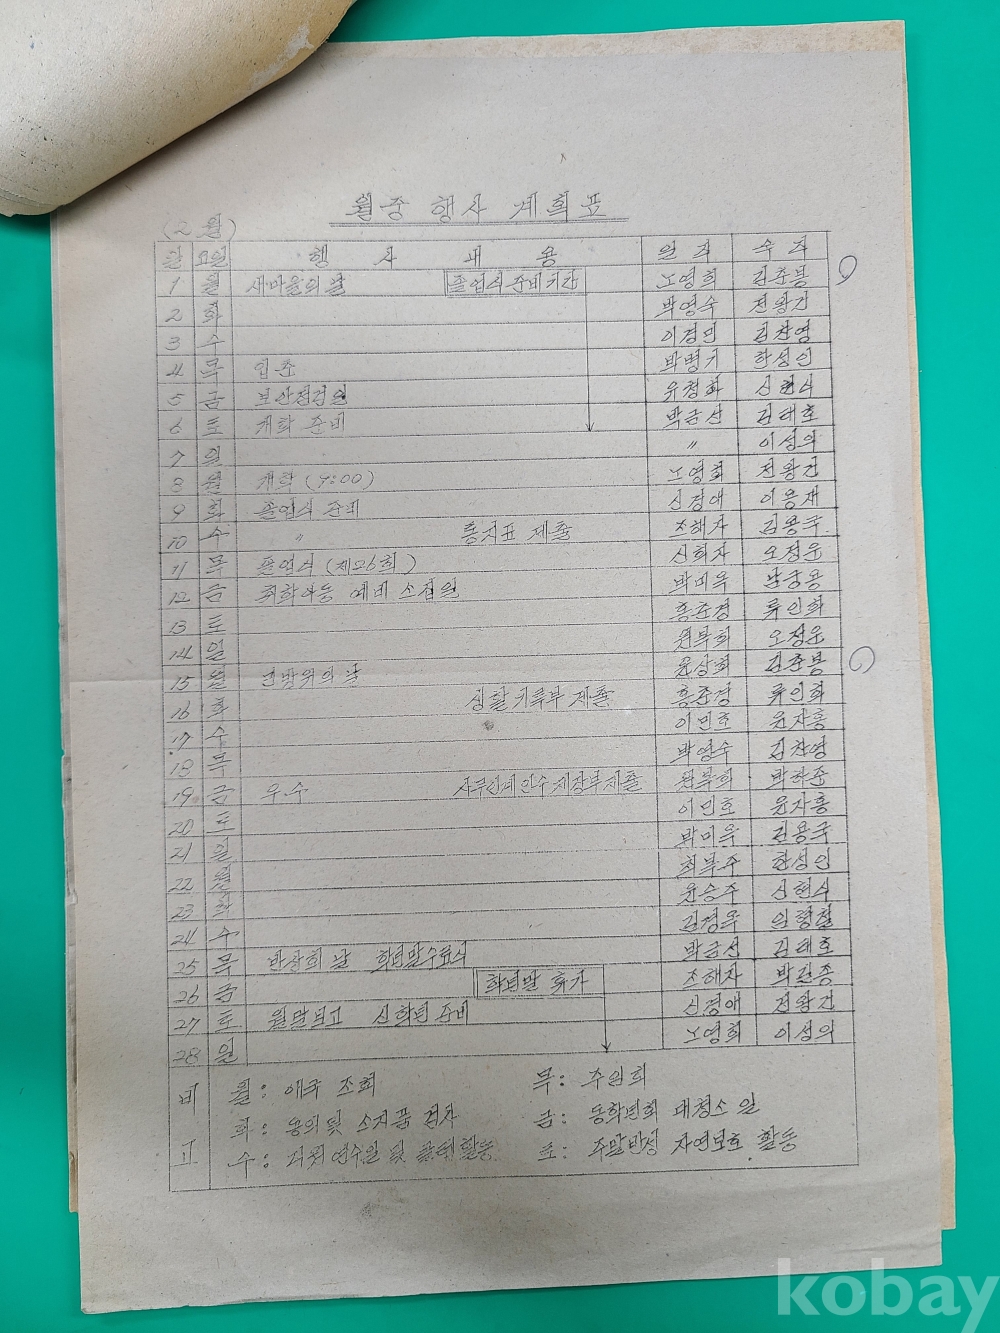 월중 행사 계획표
(2월)
일 요일 행사내용 일직 숙직
1 월 새마을의 날 졸업식 준비기간 노영희 김준봉
2 화 박영숙 전왕건
3 수 이경민 김찬영
4 목 입춘 박병기 한성인
5 금 보안점검일 유정화 신현식
6 토 개학 준비 박금선 김태호
7 일 〃 이성의
8 월 개학 (9:00) 노영희 전왕건
9 화 졸업식 준비 신경애 이용재
10 수 〃 통지표 제출 조해자 김용국
11 목 졸업식 (제26회) 신희자 오정운
12 금 취학아동 예비 소집일 박미옥 남궁용
13 토 홍준경 류인희
14 일 원부희 오정운
15 월 민방위의 날 윤상희 김준봉
16 화 생활기록부 제출 홍준경 류인희
17 수 이민호 윤자홍
18 목 박영숙 김찬영
19 금 우수 사무인계인수 제장부제출 원부희
20 토 이민호 윤자홍
21 일 박미옥 김용국
22 월 최부주 한성인
23 화 윤승주 신현식
24 수 김정옥 임형철
25 목 반상회 날 학년말수료식 박금선 김태호
26 금 학년말 휴가 조해자 박길종
27 토 월말보고 신학년 준비 신경애 전왕건
28 일 노영희 이성의
비고
월: 애국 조회 목: 주임회
화: 용의 및 소지품 검사 금: 동학년회 대청소 일
수: 직원연수일 및 클럽활동 토: 주말반성 자연보호 활동
kobay